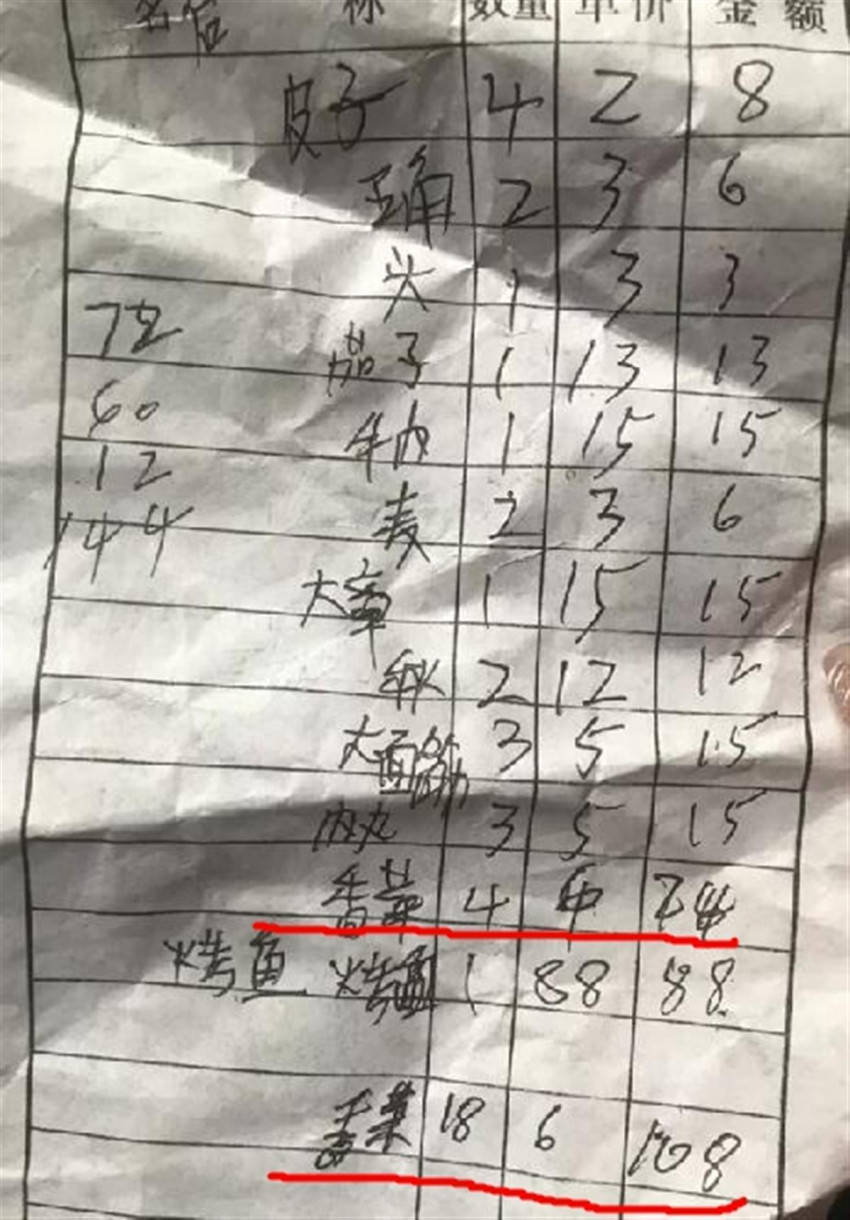 名 称 数量 单价 金额
皮子 4 2 8
2 3 6
头 1 3 3
72 茄子 1 13 13
60 牛肉 1 15 15
12 麦 2 3 6
144
大章 1 15 15
2 12 12
大面筋 3 5 15
肉丸 3 5 15
香菜 4
烤鱼 1 88 88
香菜 18 6 108